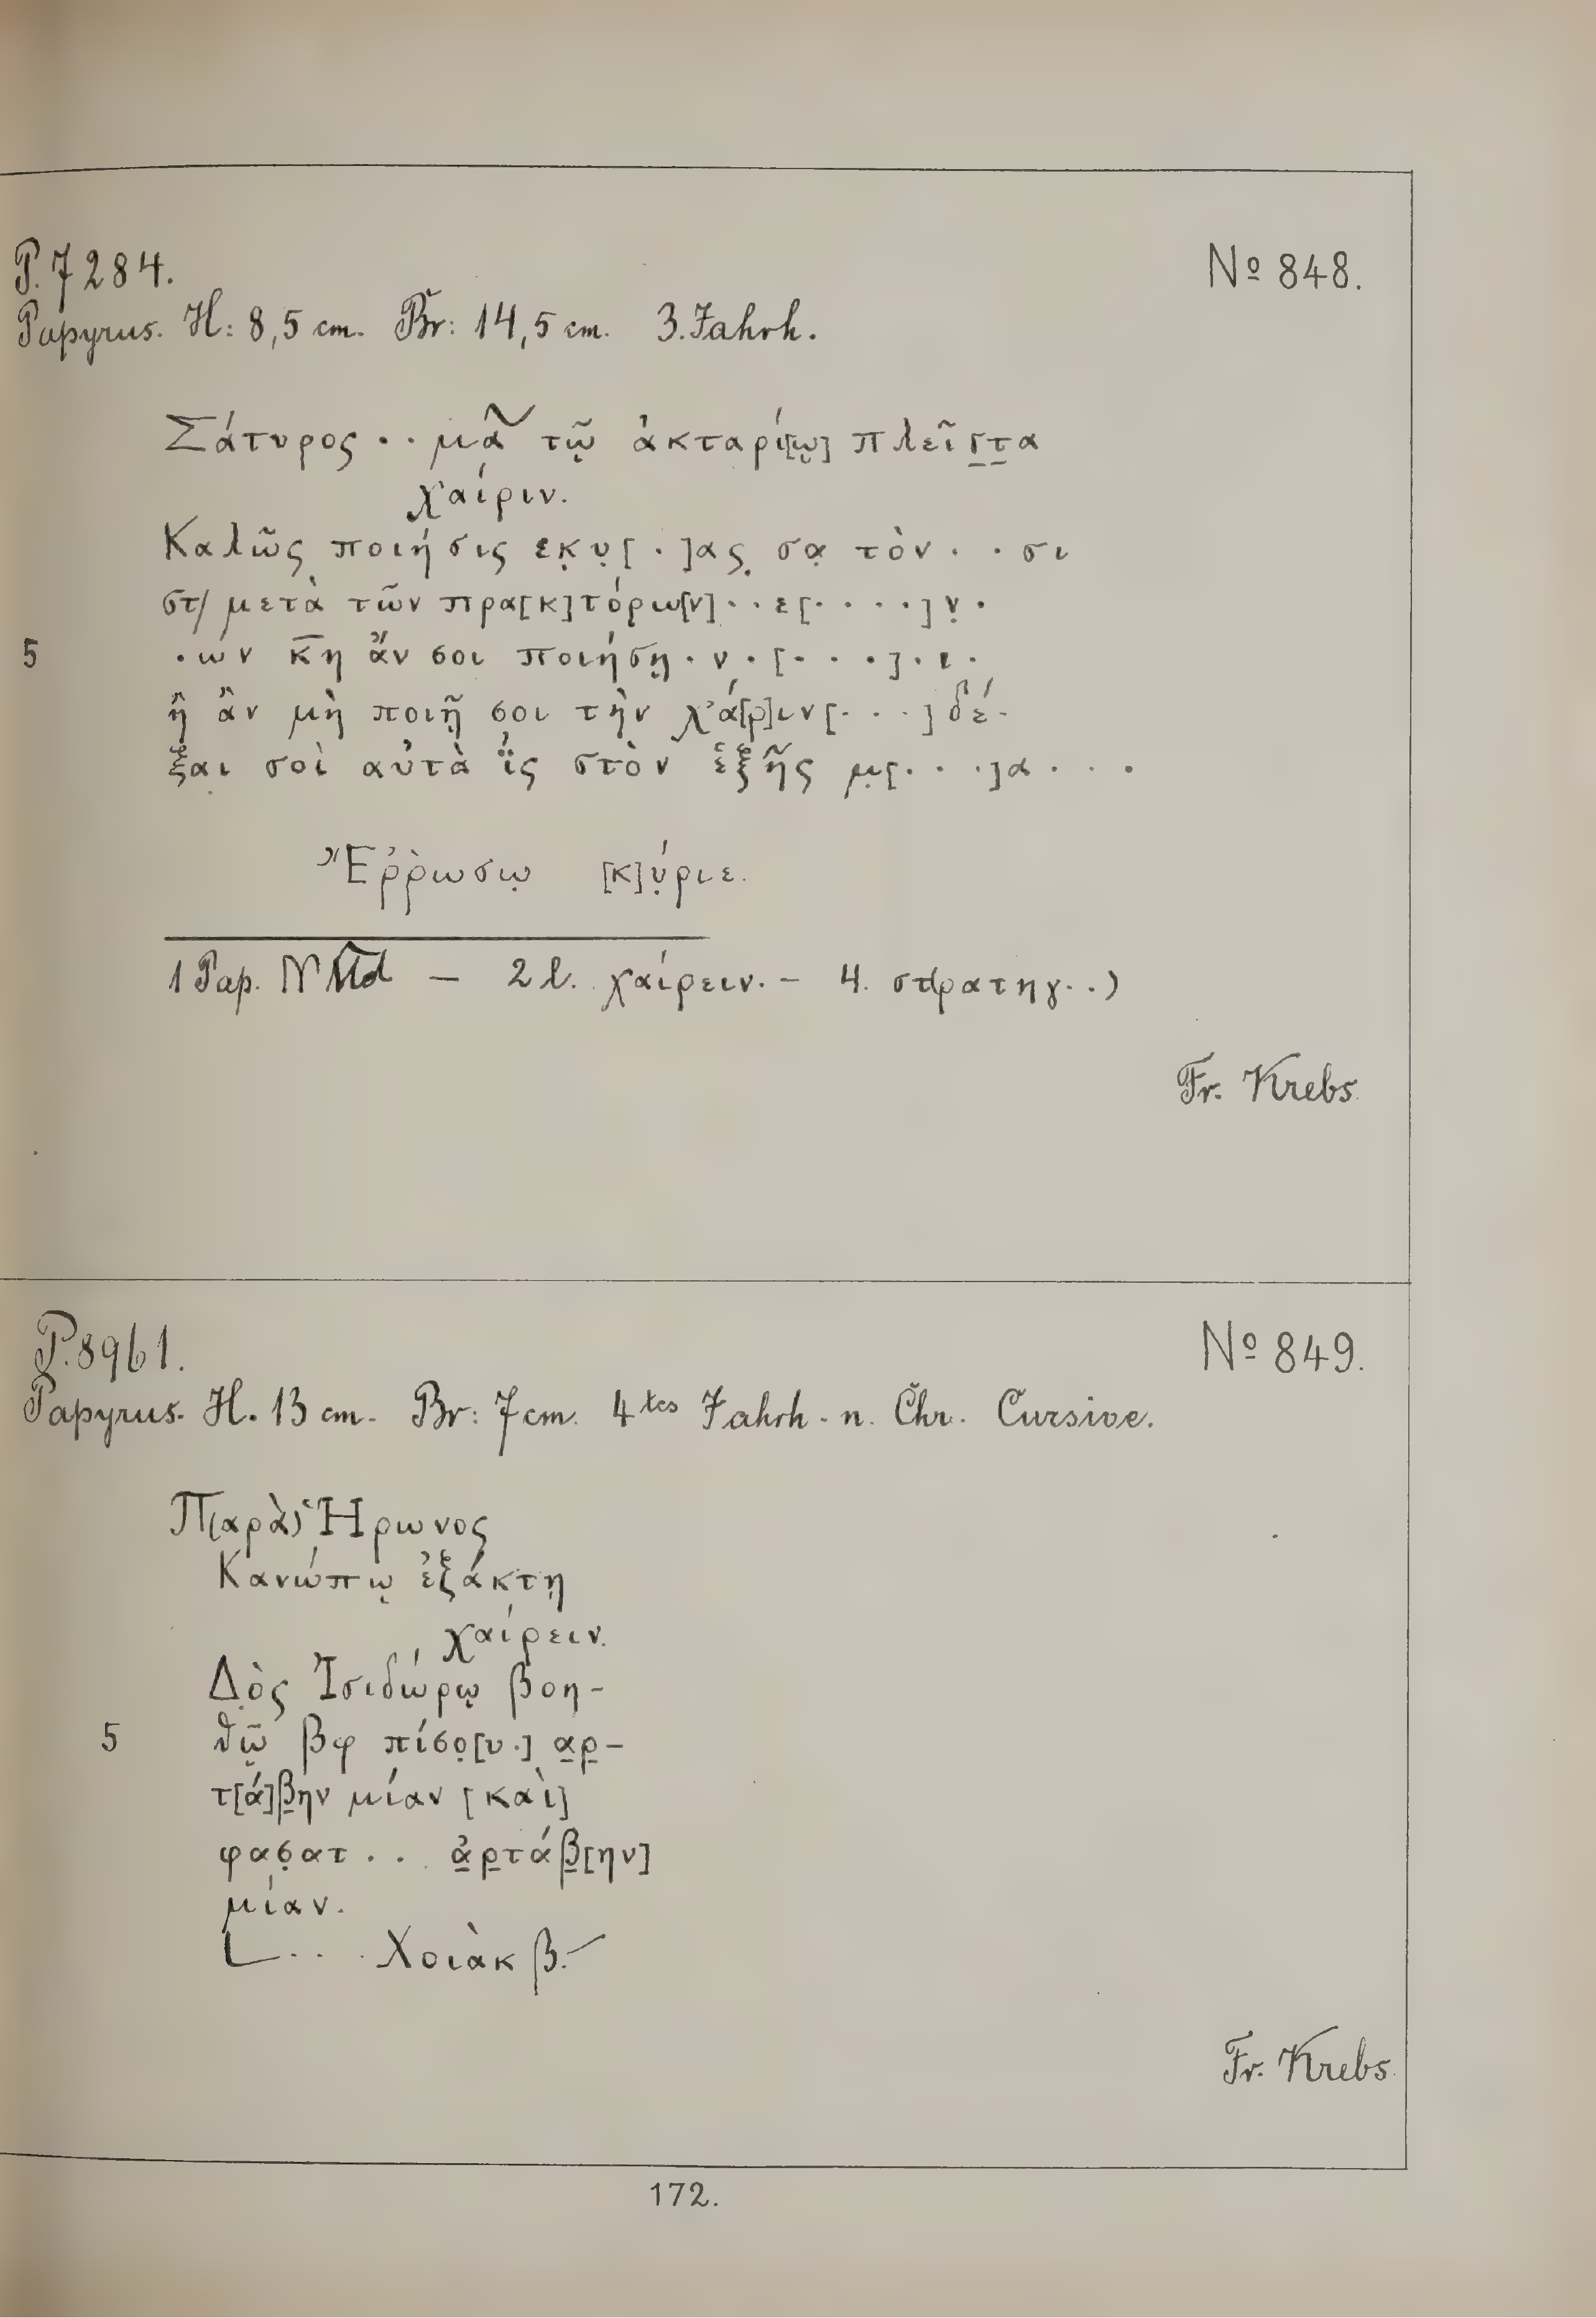 P. 7284.
Nº 848.
Papyrus. H: 8,5 cm. Br: 14,5 cm. 3. Jahrh.
Σάτυρος . . μᾶ τῷ ἀκταρί[ῳ] πλεῖς̲τ̲α
χαίριν.
Καλῶς ποιήσις εκ̣υ̣[ . ]ας̣ σα̣ τὸν . . σι
στ/ μετὰ τῶν πρα[κ]τόρω[ν] . . ε[ . . . . ] ν̣ .
5 . ων κ̅η ἄν σοι ποιήσῃ . ν . [ . . . ] . ι .
ἢ ἂν μὴ ποιῇ σοι τὴν χά[ρ]ιν[ . . . ] δέ-
ξαι σοὶ αὐτὰ ἲς στὸν ἑξῆς μ̣[ . . . ]α . . .
Ἔῤῥωσω̣ [κ]ύ̣ριε.
1 Pap. – 2 l. χαίρειν. – 4. στ(ρατηγ . .)
Fr. Krebs.
P. 8961.
Nº 849.
Papyrus. H. 13 cm. Br: 7 cm. 4tes Jahrh. n. Chr. Cursive.
Π(αρὰ) Ἥρωνος
Κανώπῳ ἐξάκτῃ
χαίρειν.
Δὸς Ἰσιδώρῳ βοη-
5 θῷ βφ πίσο̣[υ .] α̲ρ̲-
τ[ά]β̲ην μίαν [καὶ]
φασ̣ατ . . ἀ̲ρ̲τάβ̲[ην]
μίαν.
L . . . Χοιὰκ β.
Fr. Krebs.
172.